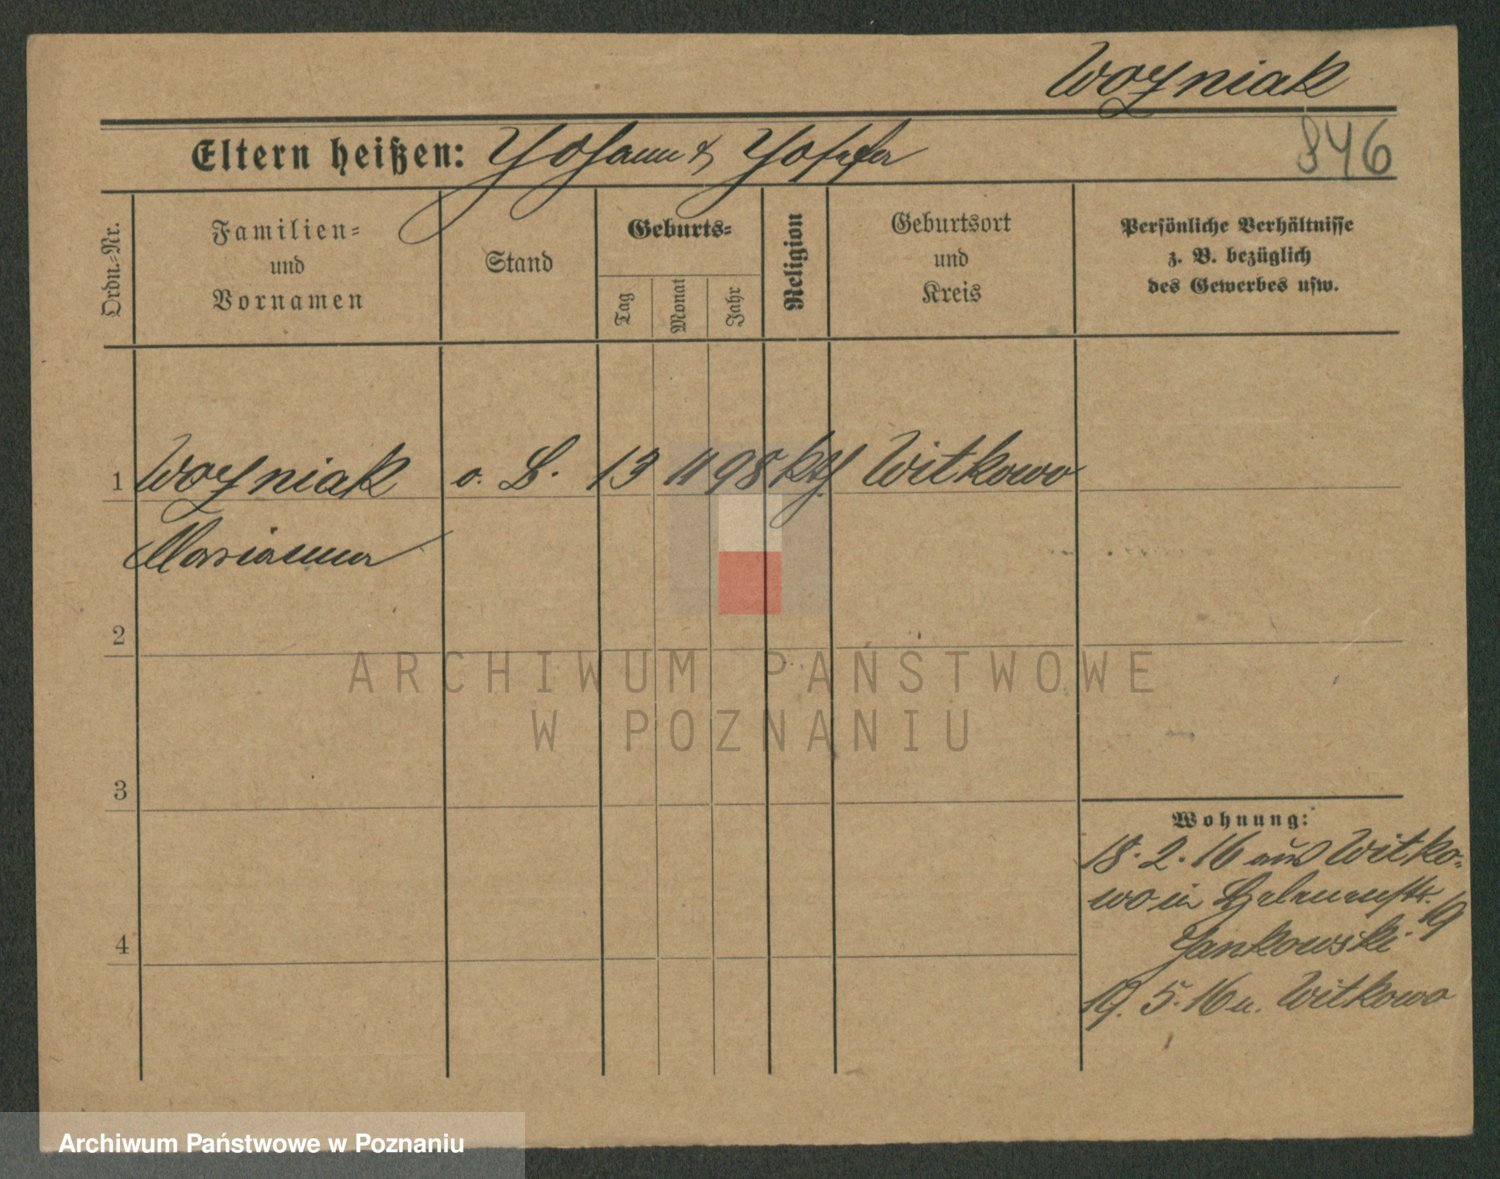 Woyniak
846
Eltern heißen: Johann & Josefa
Ordn.-Nr.
Familien-
und
Vornamen
Stand
Geburts-
Tag
Monat
Jahr
Religion
Geburtsort
und
Kreis
Persönliche Verhältnisse
z. B. bezüglich
des Gewerbes usw.
1 Woyniak o. B. 13 11 98 kth Witkowo
Marianna
2
3
4
Wohnung:
18. 2. 16 aus Witko-
wo in Helenenstr. 19
Jankowski.
19. 5. 16 n. Witkowo
ARCHIWUM PAŃSTWOWE
W POZNANIU
Archiwum Państwowe w Poznaniu